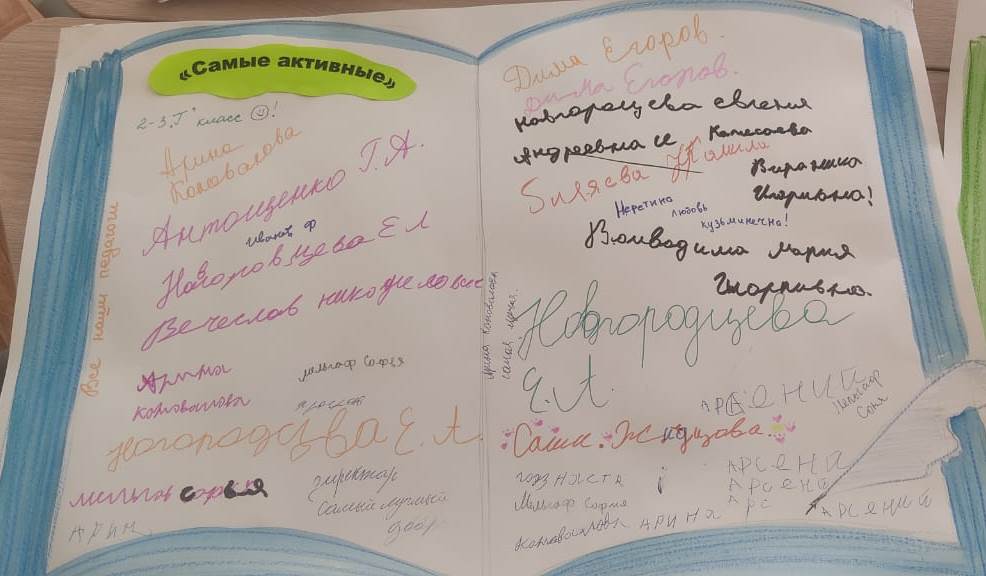 «Самые активные»
2-3 "Г" класс !
Арина
Коновалова
Антощенко Г.А.
Иванят Ф
Новгоровцева Е Л
Вечеслав никоделовис
Все наши педагоги
Арина
Коновалова
мельгаф София
Ногородцева Е. А.
директор
Самый лучший
мельгаф софья
АРИН
Дима Егоров.
Дима Егоров.
новгородцева евгения
Андреевна и
Камила
Биляева
Вираника
Игоривна!
Неретина
любовь
кузьминечна!
Воиводима мария
Игоривна.
Арина Коновалова
самая
Новгородцева
Е.А.
АРСЕНИЙ
Мельгаф
Соня
Саши. Жидцова.
годз настя
Мельгаф София
Коновалова АРИНА
АРСЕНИ
АРСЕНИ
АРС
АРСЕНИЙ